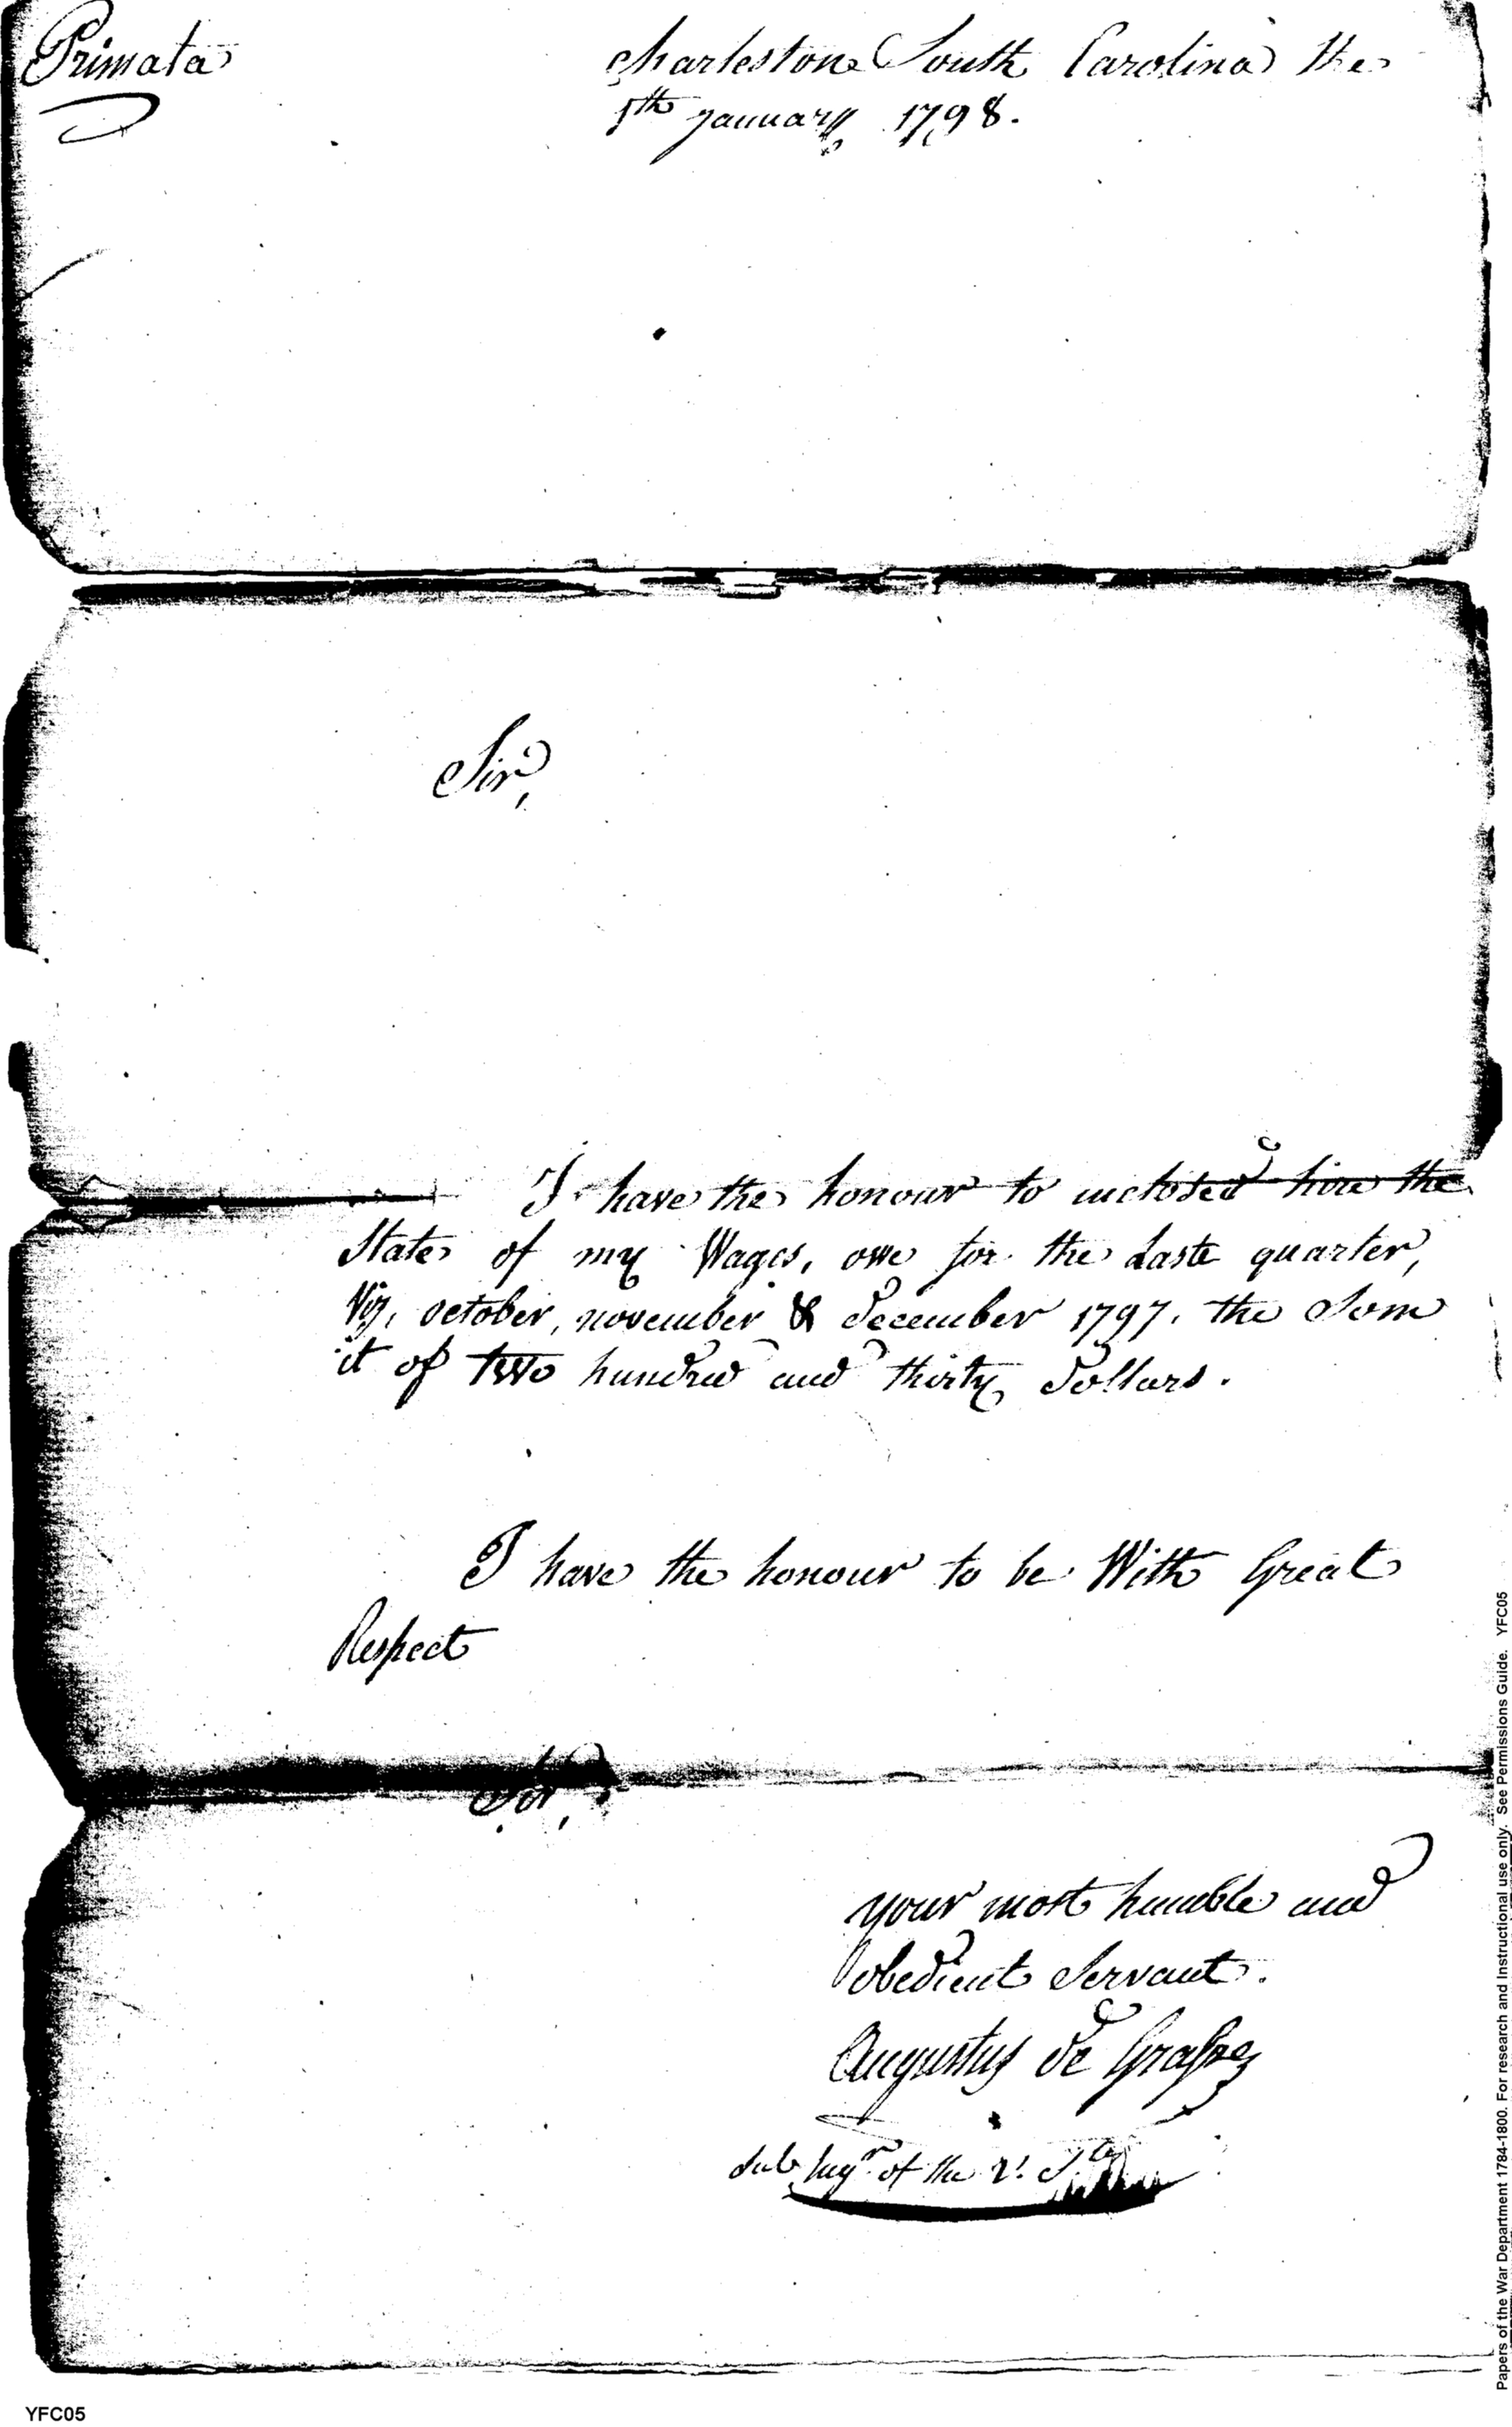 Primata
charleston South Carolina the
5th january 1798.
Sir,
I have the honour to inclosed hire the
State of my Wages, owe for the Laste quarter,
Viz, october, november & december 1797. the Som
it of two hundred and thirty dollars.
I have the honour to be With Great
Respect
Sir,
your most humble and
obedient Servant.
Augustus de Grasse
Sub Ingr of the
Papers of the War Department 1784-1800. For research and Instructional use only. See Permissions Guide. YFC05
YFC05